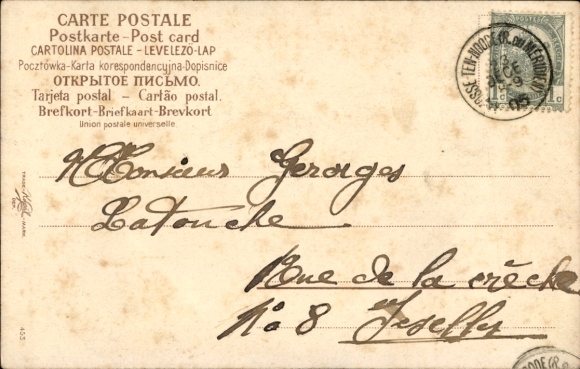 CARTE POSTALE
Postkarte - Post card
CARTOLINA POSTALE - LEVELEZŐ-LAP
Pocztówka - Karta korespondencyjna - Dopisnice
ОТКРЫТОЕ ПИСЬМО.
Tarjeta postal - Cartão postal.
Brefkort - Briefkaart - Brevkort
Union postale universelle
TRADE MARK
455
Monsieur Georges
Latouche
Rue de la crèche
No 8 Ixelles